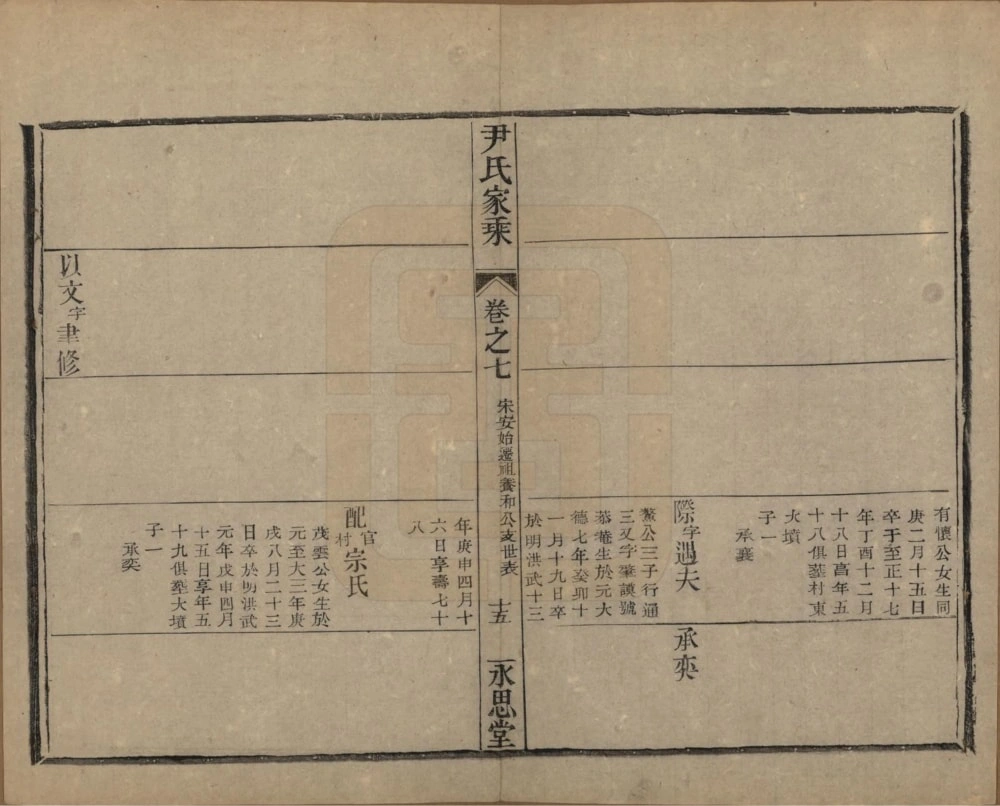 有懷公女生同
庚二月十五日
卒于至正十七
年丁酉十二月
十八日高年五
十八俱塟村東
火墳
子一
承襄
際字遇夫
鰲公三子行通
三又字肇謨號
恭菴生於元大
德七年癸卯十
一月十九日卒
於明洪武十三
承奕
尹氏家乘
卷之七
宋安始遷祖養和公支世表
十五
永思堂
年庚申四月十
六日享壽七十
八
配官村宗氏
茂雲公女生於
元至大三年庚
戌八月二十三
日卒於明洪武
元年戊申四月
十五日享年五
十九俱塟大墳
子一
承奕
以文字聿修